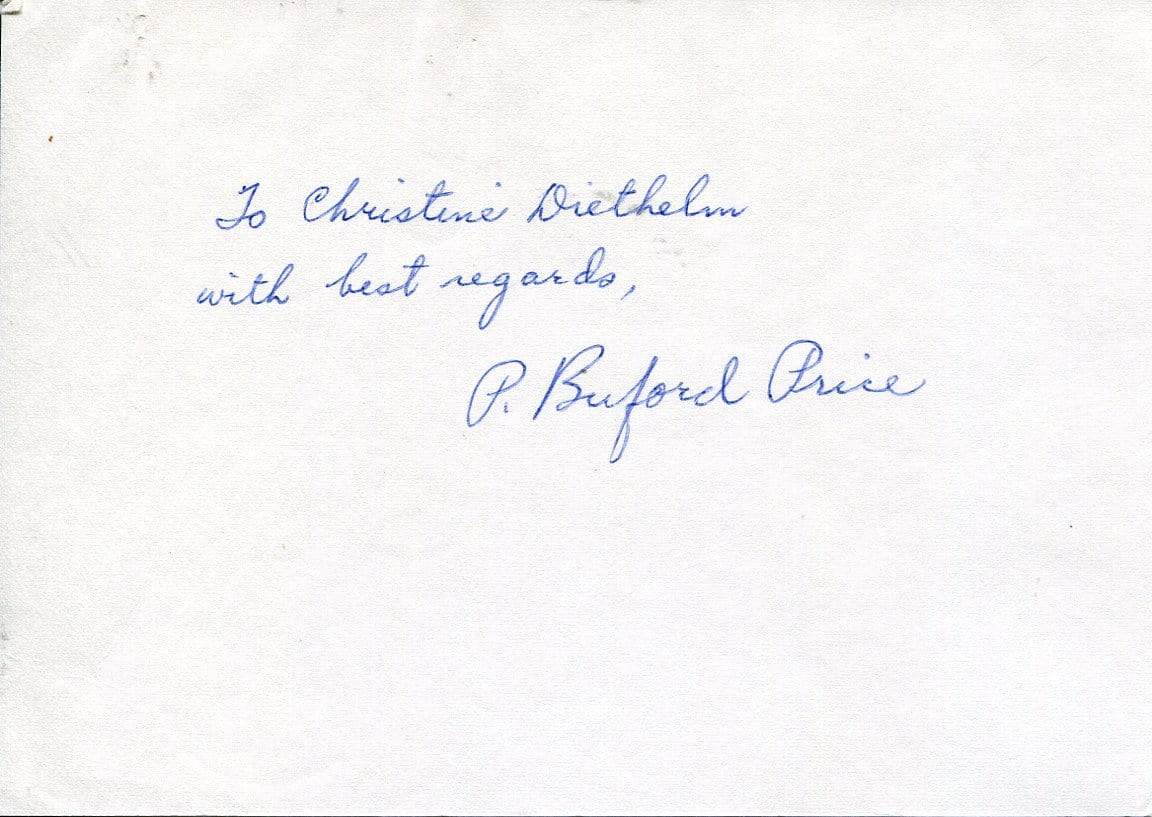 To Christine Diethelm
with best regards,
P. Buford Price